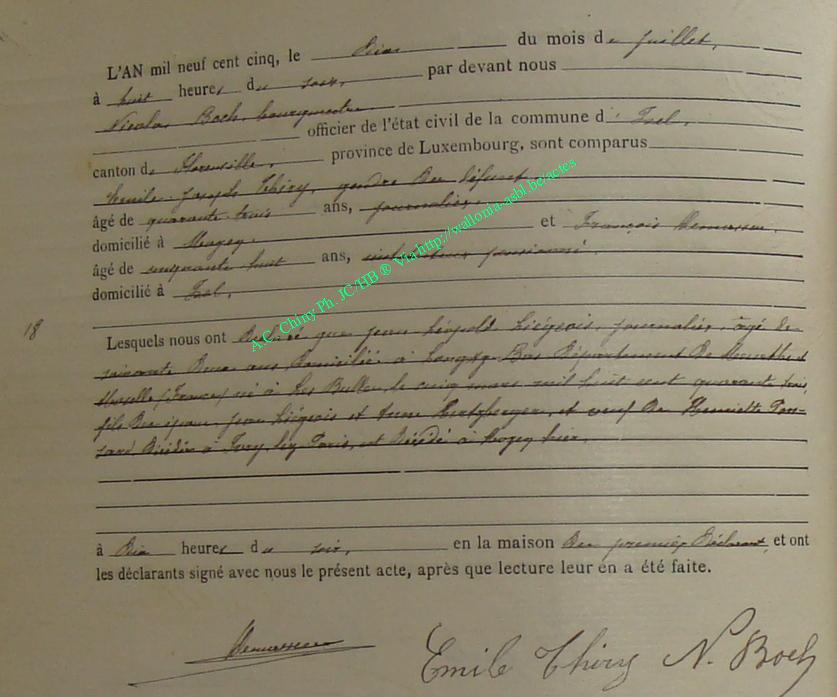 18
L'AN mil neuf cent cinq, le dix du mois de juillet,
à huit heures du soir, par devant nous
Nicolas Boch, bourgmestre
officier de l'état civil de la commune d'Izel,
canton de Florenville, province de Luxembourg, sont comparus
Emile Joseph Thiry, gendre du défunt
âgé de quarante trois ans, journalier,
domicilié à Moyen. et François
âgé de cinquante huit ans, pensionné.
domicilié à Izel,
Lesquels nous ont déclaré que Jean Léopold Liégeois, journalier, âgé de
soixante deux ans domicilié à Longwy-Bas Département de Meurthe et
Moselle (France) né à Les Bulles le cinq mars mil huit cent quarante trois,
fils des époux Jean Liégeois et Anne et veuf de Henriette
décédée à Ivry lez Paris, est décédé à Moyen hier,
à dix heures du soir, en la maison du premier déclarant, et ont
les déclarants signé avec nous le présent acte, après que lecture leur en a été faite.
Emile Thiry N. Boch
A.C. Chiny Ph. JC/HB ® Via http://wallonia-asbl.be/actes